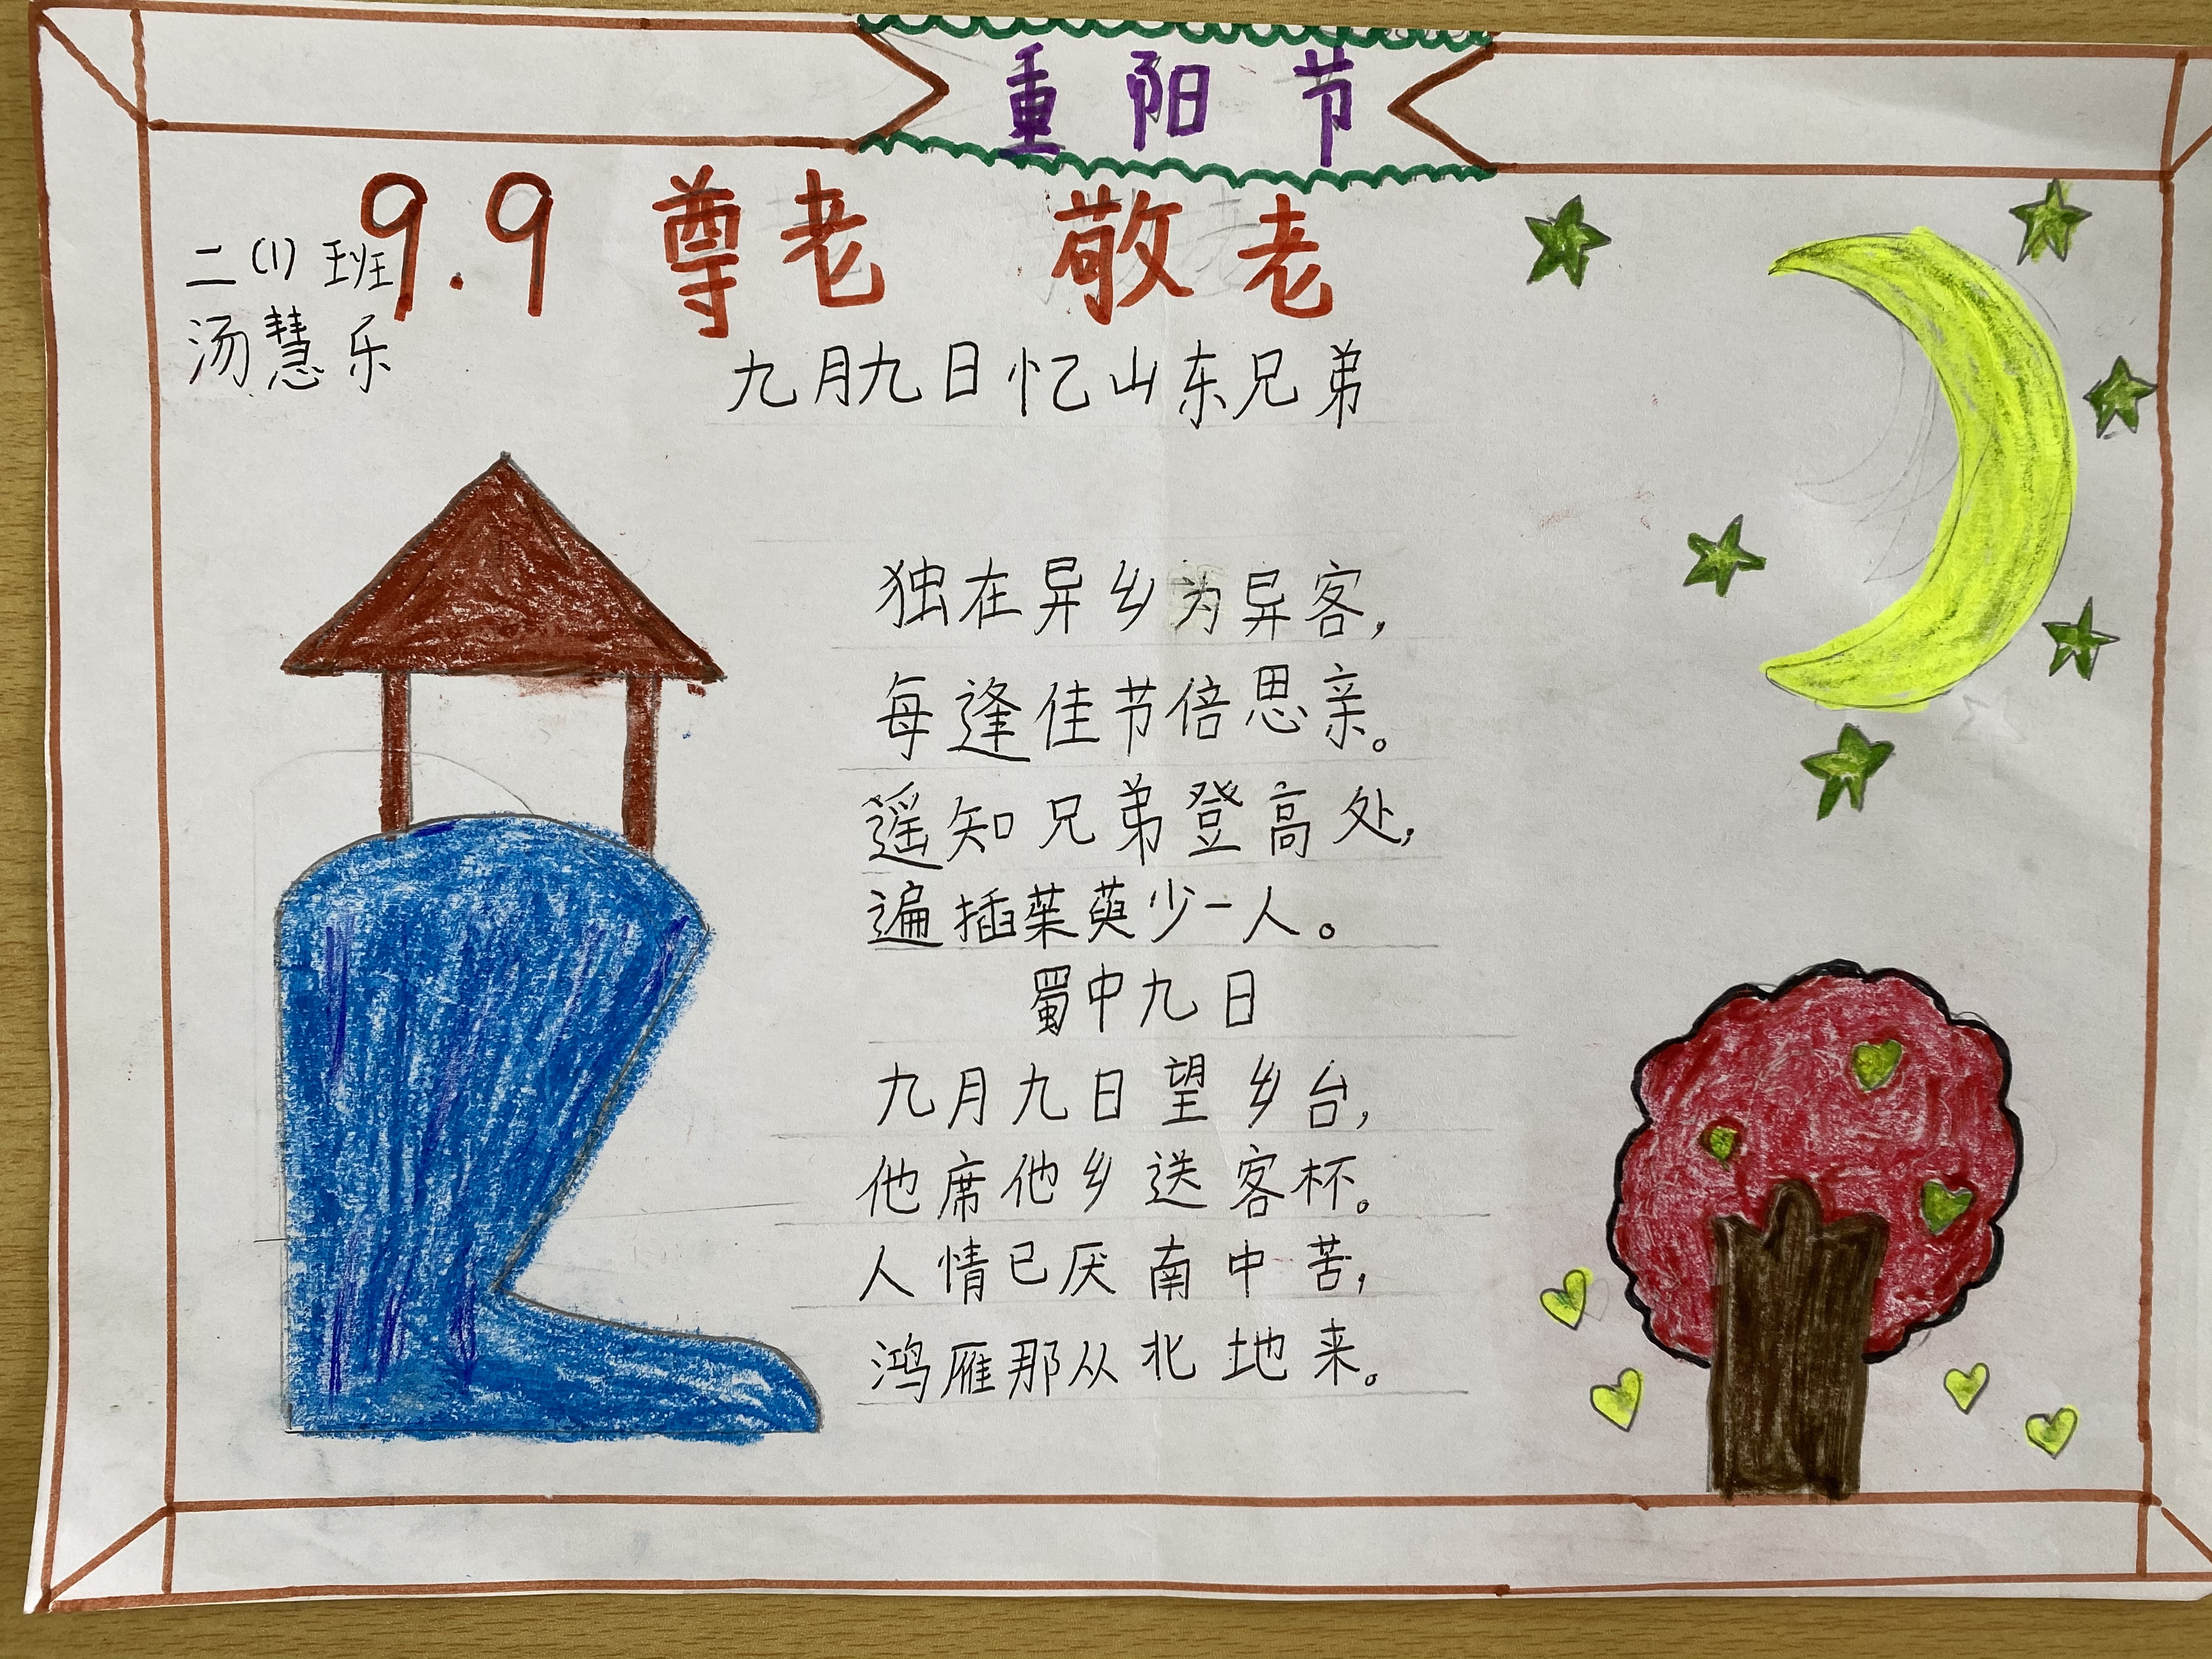 重阳节
9.9 尊老 敬老
二(1)班
汤慧乐
九月九日忆山东兄弟
独在异乡为异客,
每逢佳节倍思亲。
遥知兄弟登高处,
遍插茱萸少一人。
蜀中九日
九月九日望乡台,
他席他乡送客杯。
人情已厌南中苦,
鸿雁那从北地来。